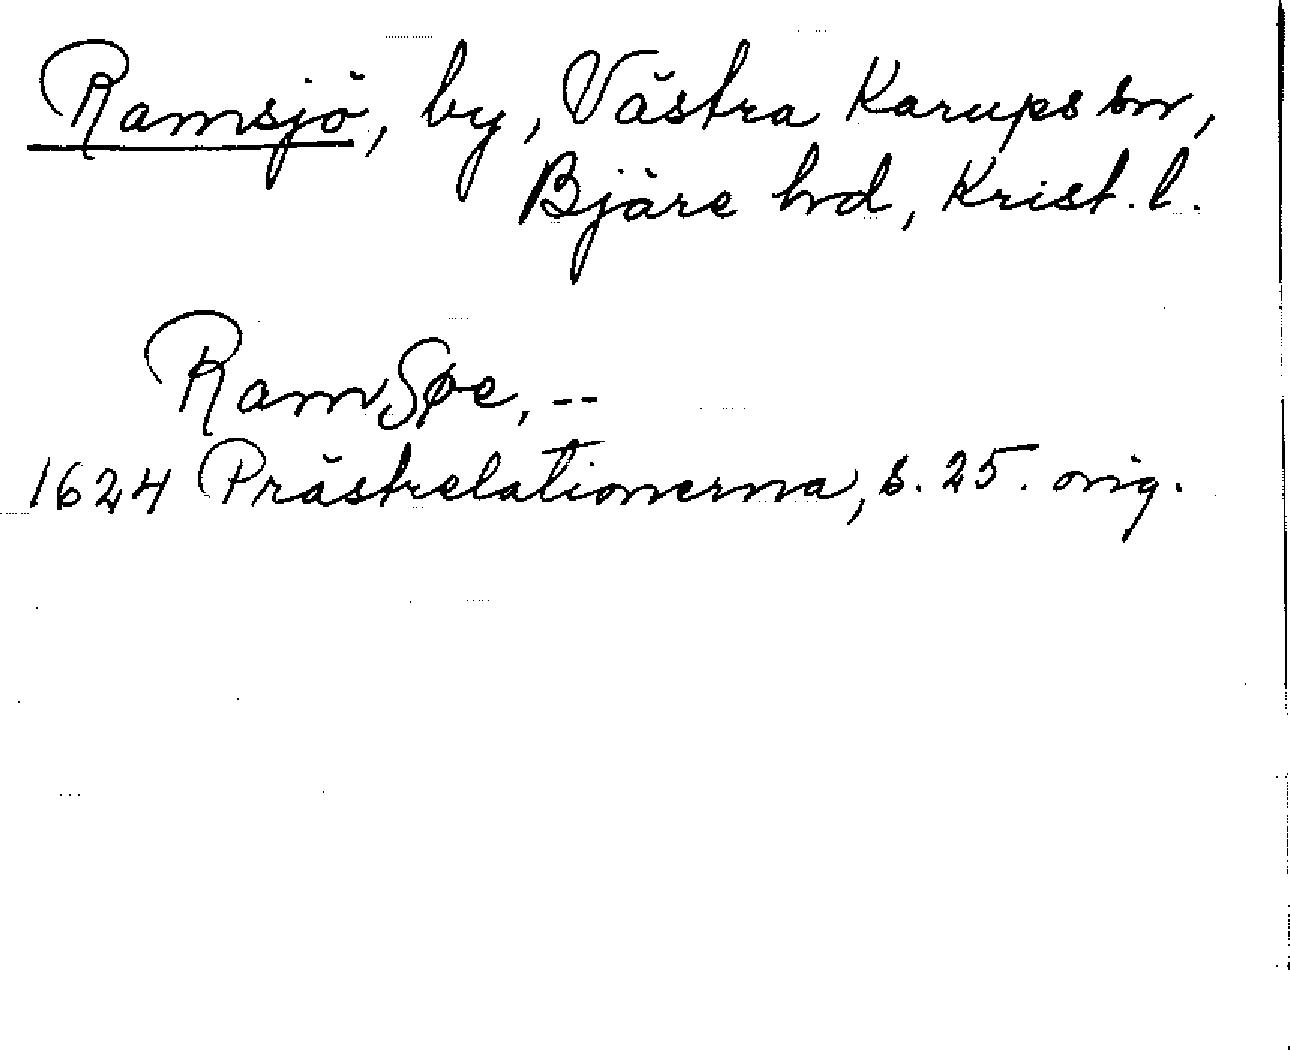 Ramsjö, by, Västra Karups sn,
Bjäre hd, Krist. l.
RamSøe, --
1624 Prästrelationerna, s. 25. orig.